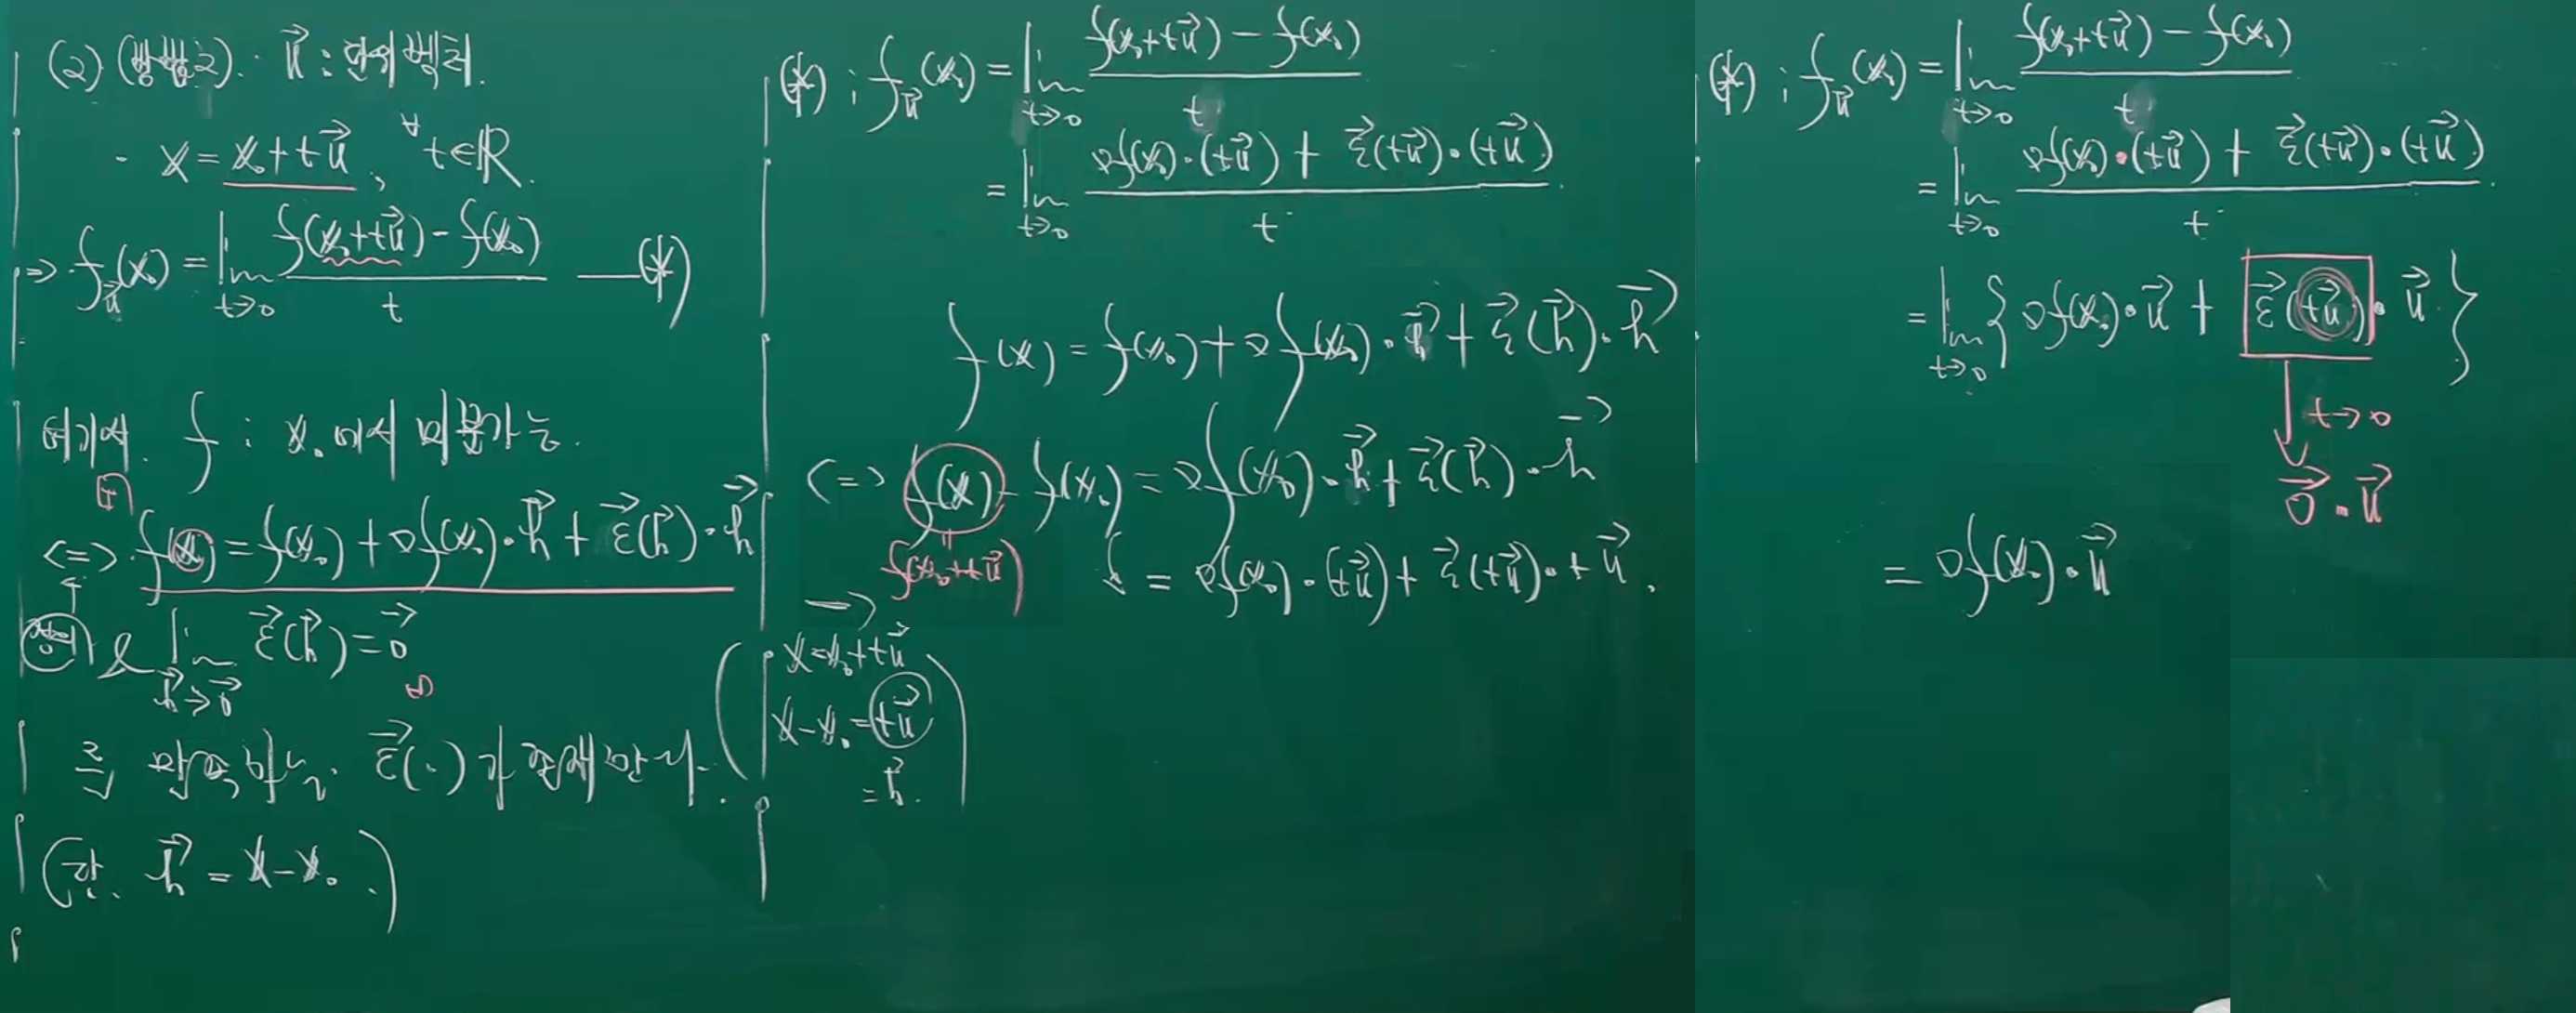 (2) (방법2). u⃗ : 단위벡터.
· 𝕏 = 𝕏₀+tu⃗, ∀t∈ℝ.
⇒ f_u⃗(𝕏₀) = lim_{t→0} (f(𝕏₀+tu⃗) - f(𝕏₀)) / t —(*)
여기서. f : 𝕏₀에서 미분가능.
⇔ f(𝕏) = f(𝕏₀) + ∇f(𝕏₀)·h⃗ + ε⃗(h⃗)·h⃗
정의 & lim_{h⃗→0⃗} ε⃗(h⃗) = 0⃗
를 만족하는 ε⃗(·)가 존재한다.
(단. h⃗ = 𝕏-𝕏₀.)
(*) ; f_u⃗(𝕏₀) = lim_{t→0} (f(𝕏₀+tu⃗) - f(𝕏₀)) / t
= lim_{t→0} (∇f(𝕏₀)·(tu⃗) + ε⃗(tu⃗)·(tu⃗)) / t
f(𝕏) = f(𝕏₀) + ∇f(𝕏₀)·h⃗ + ε⃗(h⃗)·h⃗
⇔ f(𝕏) - f(𝕏₀) = ∇f(𝕏₀)·h⃗ + ε⃗(h⃗)·h⃗
f(𝕏₀+tu⃗)
= ∇f(𝕏₀)·(tu⃗) + ε⃗(tu⃗)·tu⃗.
( 𝕏=𝕏₀+tu⃗
𝕏-𝕏₀ = tu⃗
= h⃗. )
(*) ; f_u⃗(𝕏₀) = lim_{t→0} (f(𝕏₀+tu⃗) - f(𝕏₀)) / t
= lim_{t→0} (∇f(𝕏₀)·(tu⃗) + ε⃗(tu⃗)·(tu⃗)) / t
= lim_{t→0} { ∇f(𝕏₀)·u⃗ + ε⃗(tu⃗)·u⃗ }
↓ t→0
0⃗·u⃗
= ∇f(𝕏₀)·u⃗